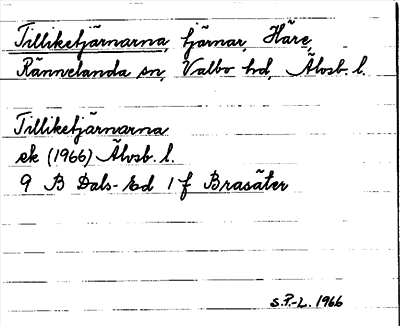 Tilliketjärnarna, tjärnar, Häre,
Rännelanda sn, Valbo hd, Älvsb. l.
Tilliketjärnarna
ek (1966) Älvsb. l.
9 B Dals-Ed 1 f Brasäter
S.P.-L. 1966